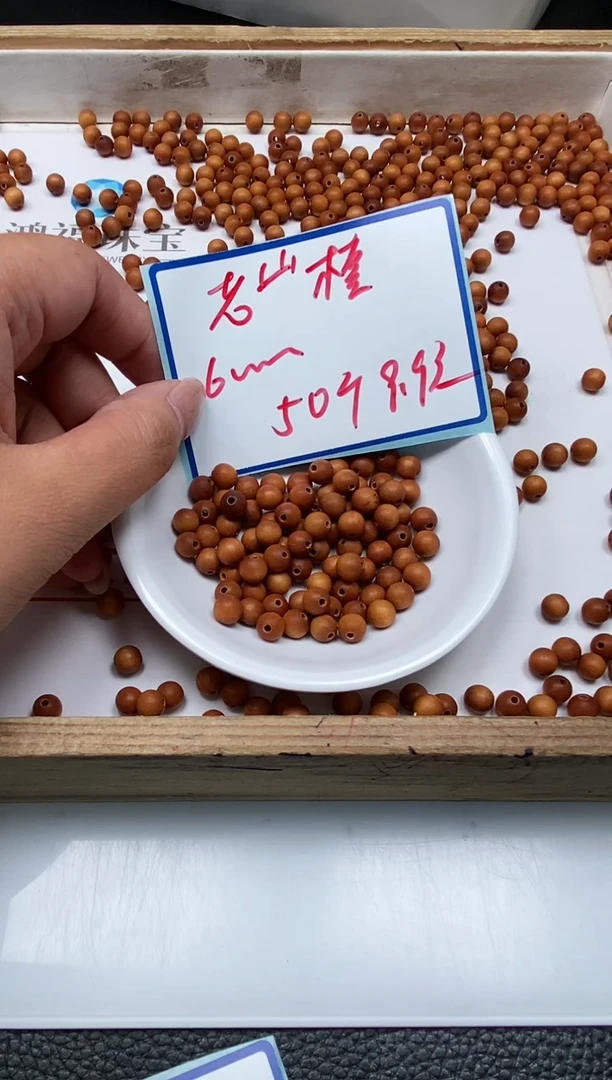 鸿福珠宝
老山檀
6mm
50个 9.9